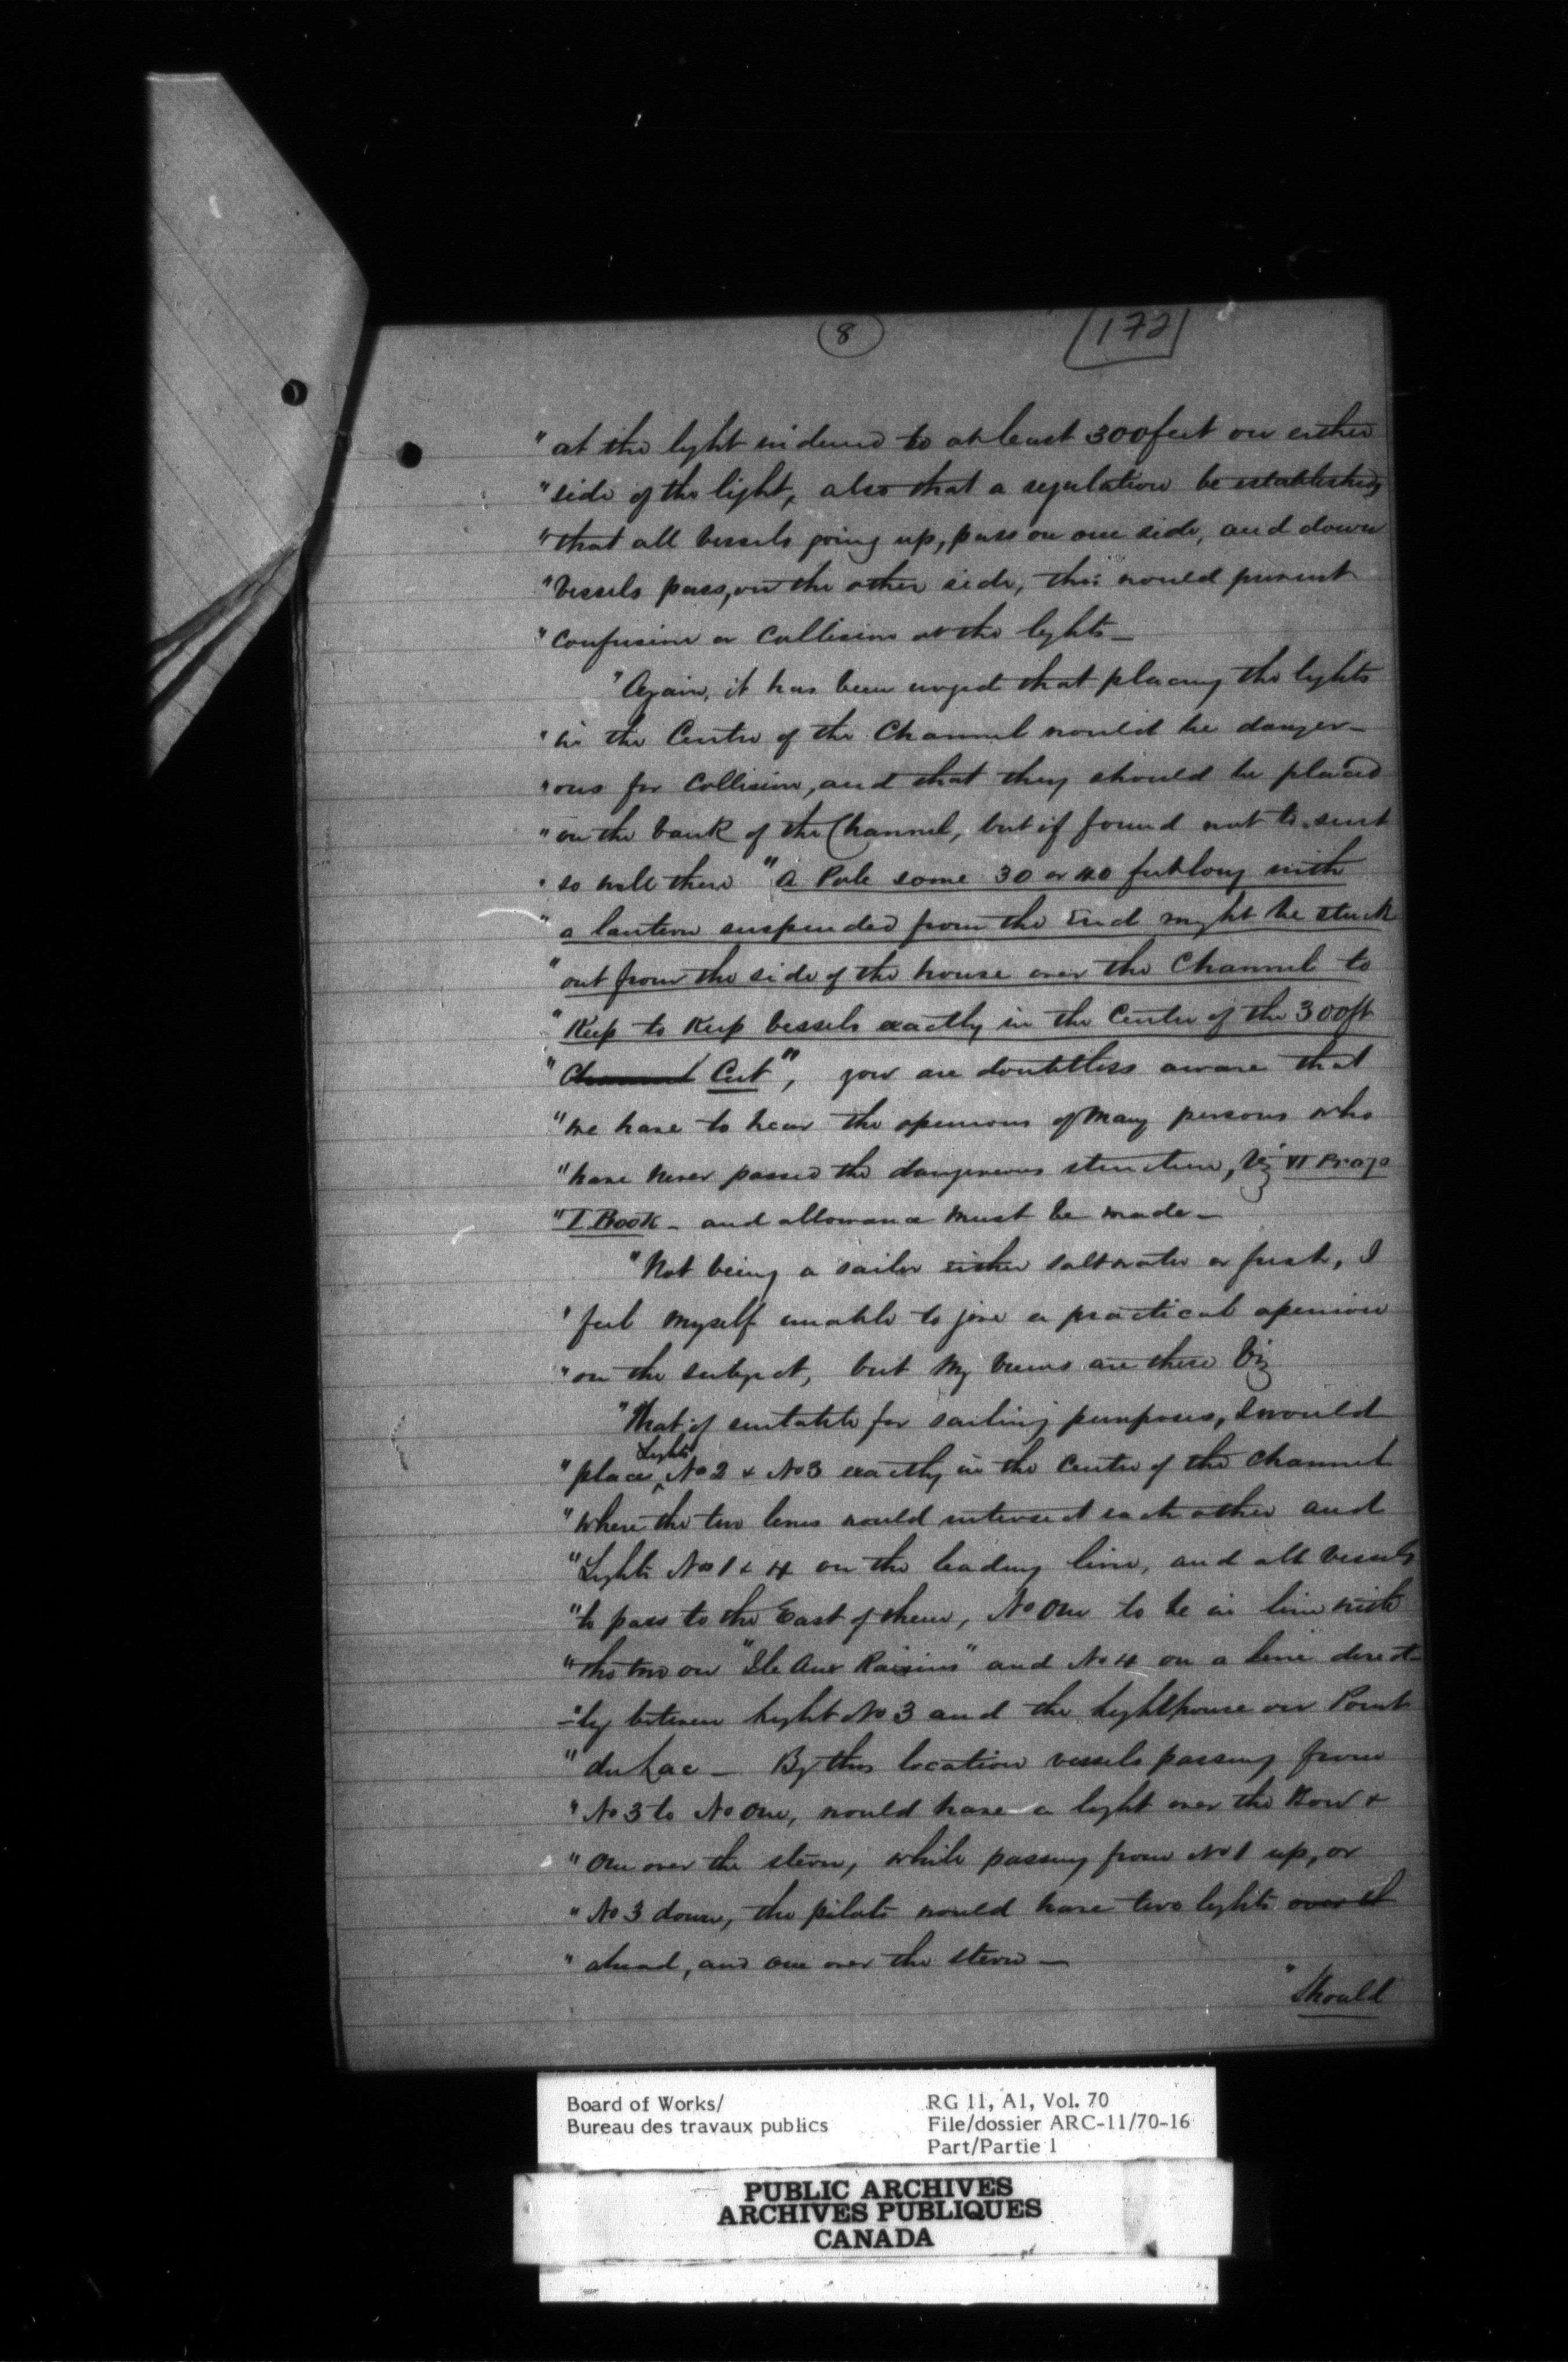 8
172
"at the light widened to at least 300 feet on either
"side of the light, also that a regulation be established
"that all vessels going up, pass on one side, and down
"Vessels pass, on the other side, this would prevent
"Confusion or Collision at the lights—
"Again, it has been urged that placing the lights
"in the Centre of the Channel would be danger-
"ous for Collision, and that they should be placed
"on the bank of the Channel, but if found not to suit
"so well there "A Pole some 30 or 40 feet long with
"a lantern suspended from the End might be stuck
"out from the side of the house over the Channel to
"Keep to Keep Vessels exactly in the Centre of the 300 ft
"Channel Cut", you are doubtless aware that
"we have to hear the openions of Many persons who
"have never passed the dangerous structure, Viz VI
"I Book - and allowance Must be made—
"Not being a sailor either saltwater or fresh, I
"feel Myself unable to give a practical openion
"on the subject, but My Views are these Viz
"That if suitable for sailing purposes, I would
"place Lights No 2 & No 3 exactly in the Centre of the Channel
"Where the two lines would intersect each other and
"Lights No 1 & 4 on the leading line, and all Vessels
"to pass to the East of them, No One to be in line with
"the two on "Ile Aux Raisins" and No 4 on a line direct-
"-ly between light No 3 and the lighthouse on Point
"du Lac — By this location vessels passing from
"No 3 to No One, would have a light over the Bow &
"One over the stern, while passing from No 1 up, or
"No 3 down, the pilots would have two lights over st
"ahead, and One over the stern—
"Should
Board of Works/
Bureau des travaux publics
RG 11, A1, Vol. 70
File/dossier ARC-11/70-16
Part/Partie 1
PUBLIC ARCHIVES
ARCHIVES PUBLIQUES
CANADA